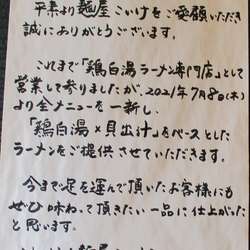 平素より麺屋こいけをご愛顧いただき
誠にありがとうございます。
これまで「鶏白湯ラーメン専門店」として
営業して参りましたが、2021年7月8日(木)
より全メニューを一新し、
「鶏白湯×貝出汁」をベースとした
ラーメンをご提供させていただきます。
今まで足を運んで頂いたお客様にも
ぜひ味わって頂きたい一品に仕上がった
と思います。